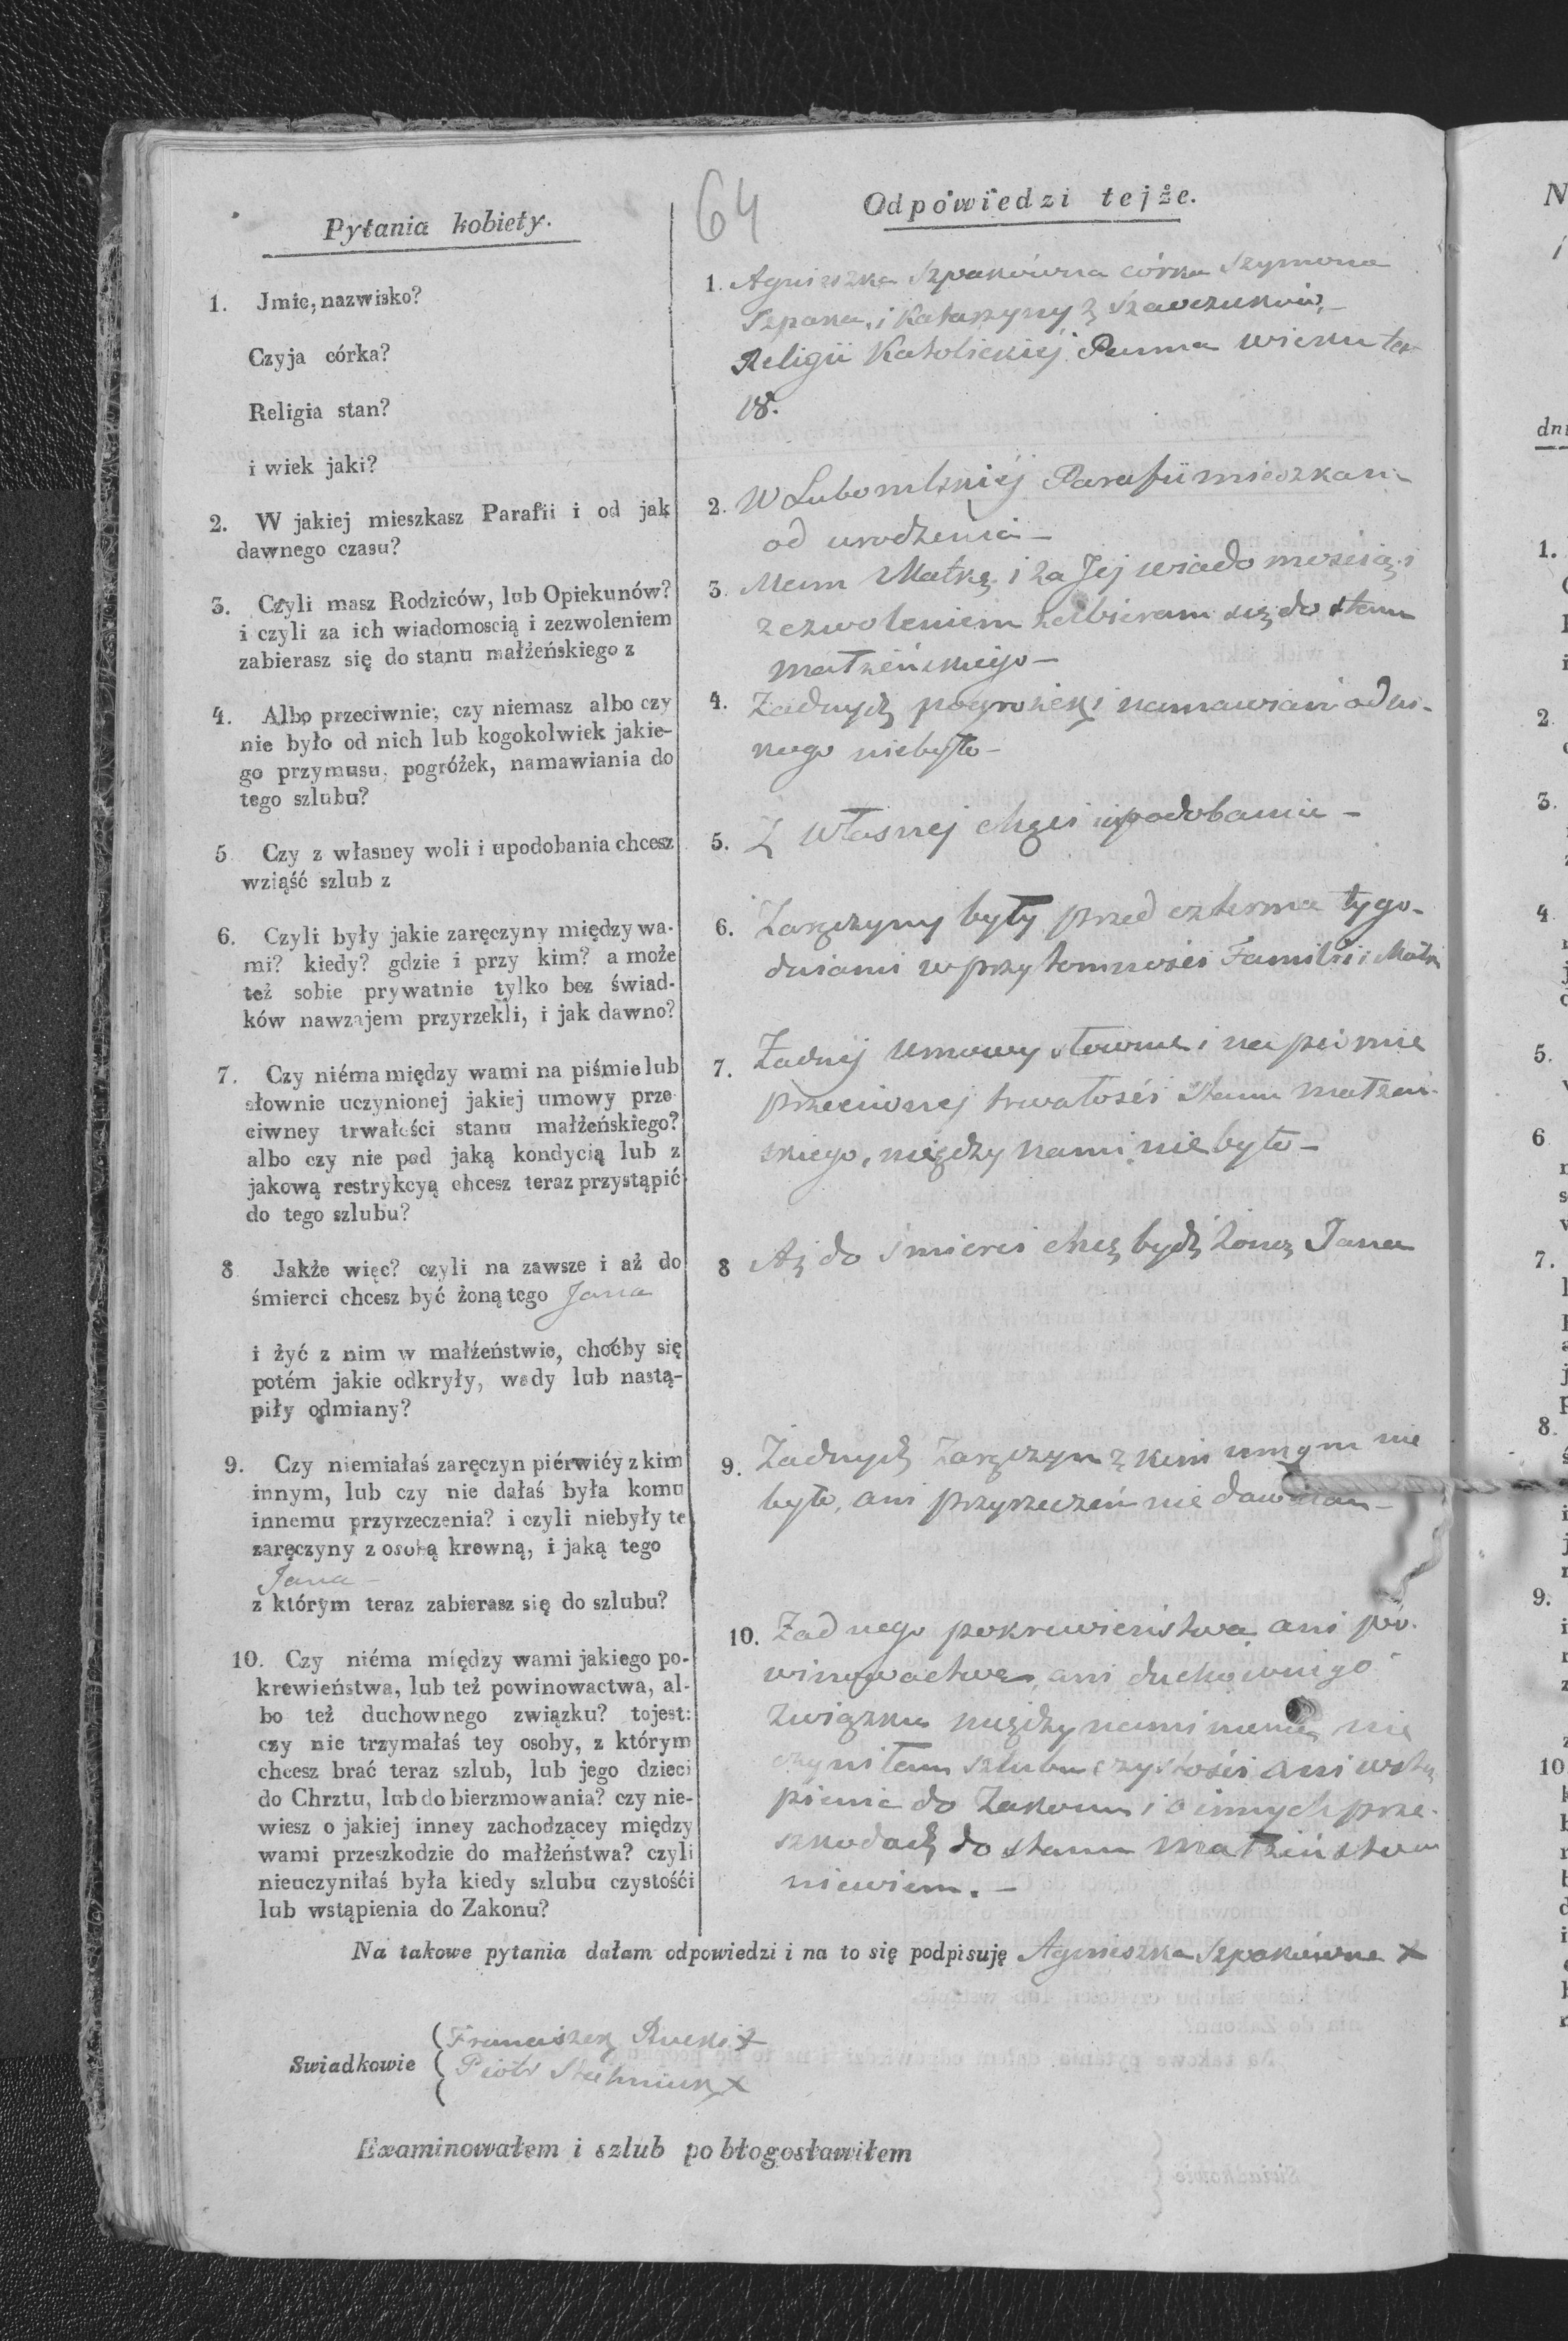 64
Pytania kobiety.
1. Jmie, nazwisko?
Czyja córka?
Religia stan?
i wiek jaki?
2. W jakiej mieszkasz Parafii i od jak
dawnego czasu?
3. Czyli masz Rodziców, lub Opiekunów?
i czyli za ich wiadomoscią i zezwoleniem
zabierasz się do stanu małżeńskiego z
4. Albo przeciwnie; czy niemasz albo czy
nie było od nich lub kogokolwiek jakie-
go przymusu, pogróżek, namawiania do
tego szlubu?
5 Czy z własney woli i upodobania chcesz
wziąść szlub z
6. Czyli były jakie zaręczyny między wa-
mi? kiedy? gdzie i przy kim? a może
też sobie prywatnie tylko bez świad-
ków nawzajem przyrzekli, i jak dawno?
7. Czy niéma między wami na piśmie lub
słownie uczynionej jakiej umowy prze
ciwney trwałości stanu małżeńskiego?
albo czy nie pod jaką kondycią lub z
jakową restrykcyą chcesz teraz przystąpić
do tego szlubu?
8 Jakże więc? czyli na zawsze i aż do
śmierci chcesz być żoną tego Jana
i żyć z nim w małżeństwie, choćby się
potém jakie odkryły, wady lub nastą-
piły odmiany?
9. Czy niemiałaś zaręczyn piérwiéy z kim
innym, lub czy nie dałaś była komu
innemu przyrzeczenia? i czyli niebyły te
zaręczyny z osobą krewną, i jaką tego
Jana -
z którym teraz zabierasz się do szlubu?
10. Czy niéma między wami jakiego po-
krewieństwa, lub też powinowactwa, al-
bo też duchownego związku? tojest:
czy nie trzymałaś tey osoby, z którym
chcesz brać teraz szlub, lub jego dzieci
do Chrztu, lub do bierzmowania? czy nie-
wiesz o jakiej inney zachodzącey między
wami przeszkodzie do małżeństwa? czyli
nieuczyniłaś była kiedy szlubu czystośći
lub wstąpienia do Zakonu?
Odpowiedzi tejże.
1. Agnieszka Szpakówna córka Szymona
Szpaka, i Katarzyny z
Religii Katolickiéj Panna wieku lat
18.
2. W Lubomlskiéj Parafii mieszkam
od urodzenia -
3. Mam Matkę i za Jéj wiadomością i
zezwoleniem zabieram się do stanu
małżeńskiego -
4. Żadnych pogrożek i namawiań od ni-
kogo niebyło -
5. Z własnej chęci i upodobania -
6. Zaręczyny były przed czterma tygo-
dniami w przytomności Familii i Matki
7. Żadnéj umowy słownie i na piśmie
przeciwnej trwałości stanu małżeń-
skiego, między nami nie było -
8 Aż do śmierci chcę bydź żoną Jana
9. Żadnych Zaręczyn z kim innym nie
było, ani przyrzeczeń nie dawałam -
10. Żadnego pokrewieństwa ani po-
winowactwa, ani duchownego
związku między nami niema nie
czyniłam szlubu czystości ani wstą
pienia do Zakonu i o innych prze-
szkodach do stanu małżeństwa
niewiem. -
Na takowe pytania dałam odpowiedzi i na to się podpisuję Agnieszka Szpakówna X
Swiadkowie
Franciszek Rucki X
Piotr X
Examinowałem i szlub pobłogosławiłem
N
dni
1.
2
3.
4
5.
6
7.
8.
9.
10